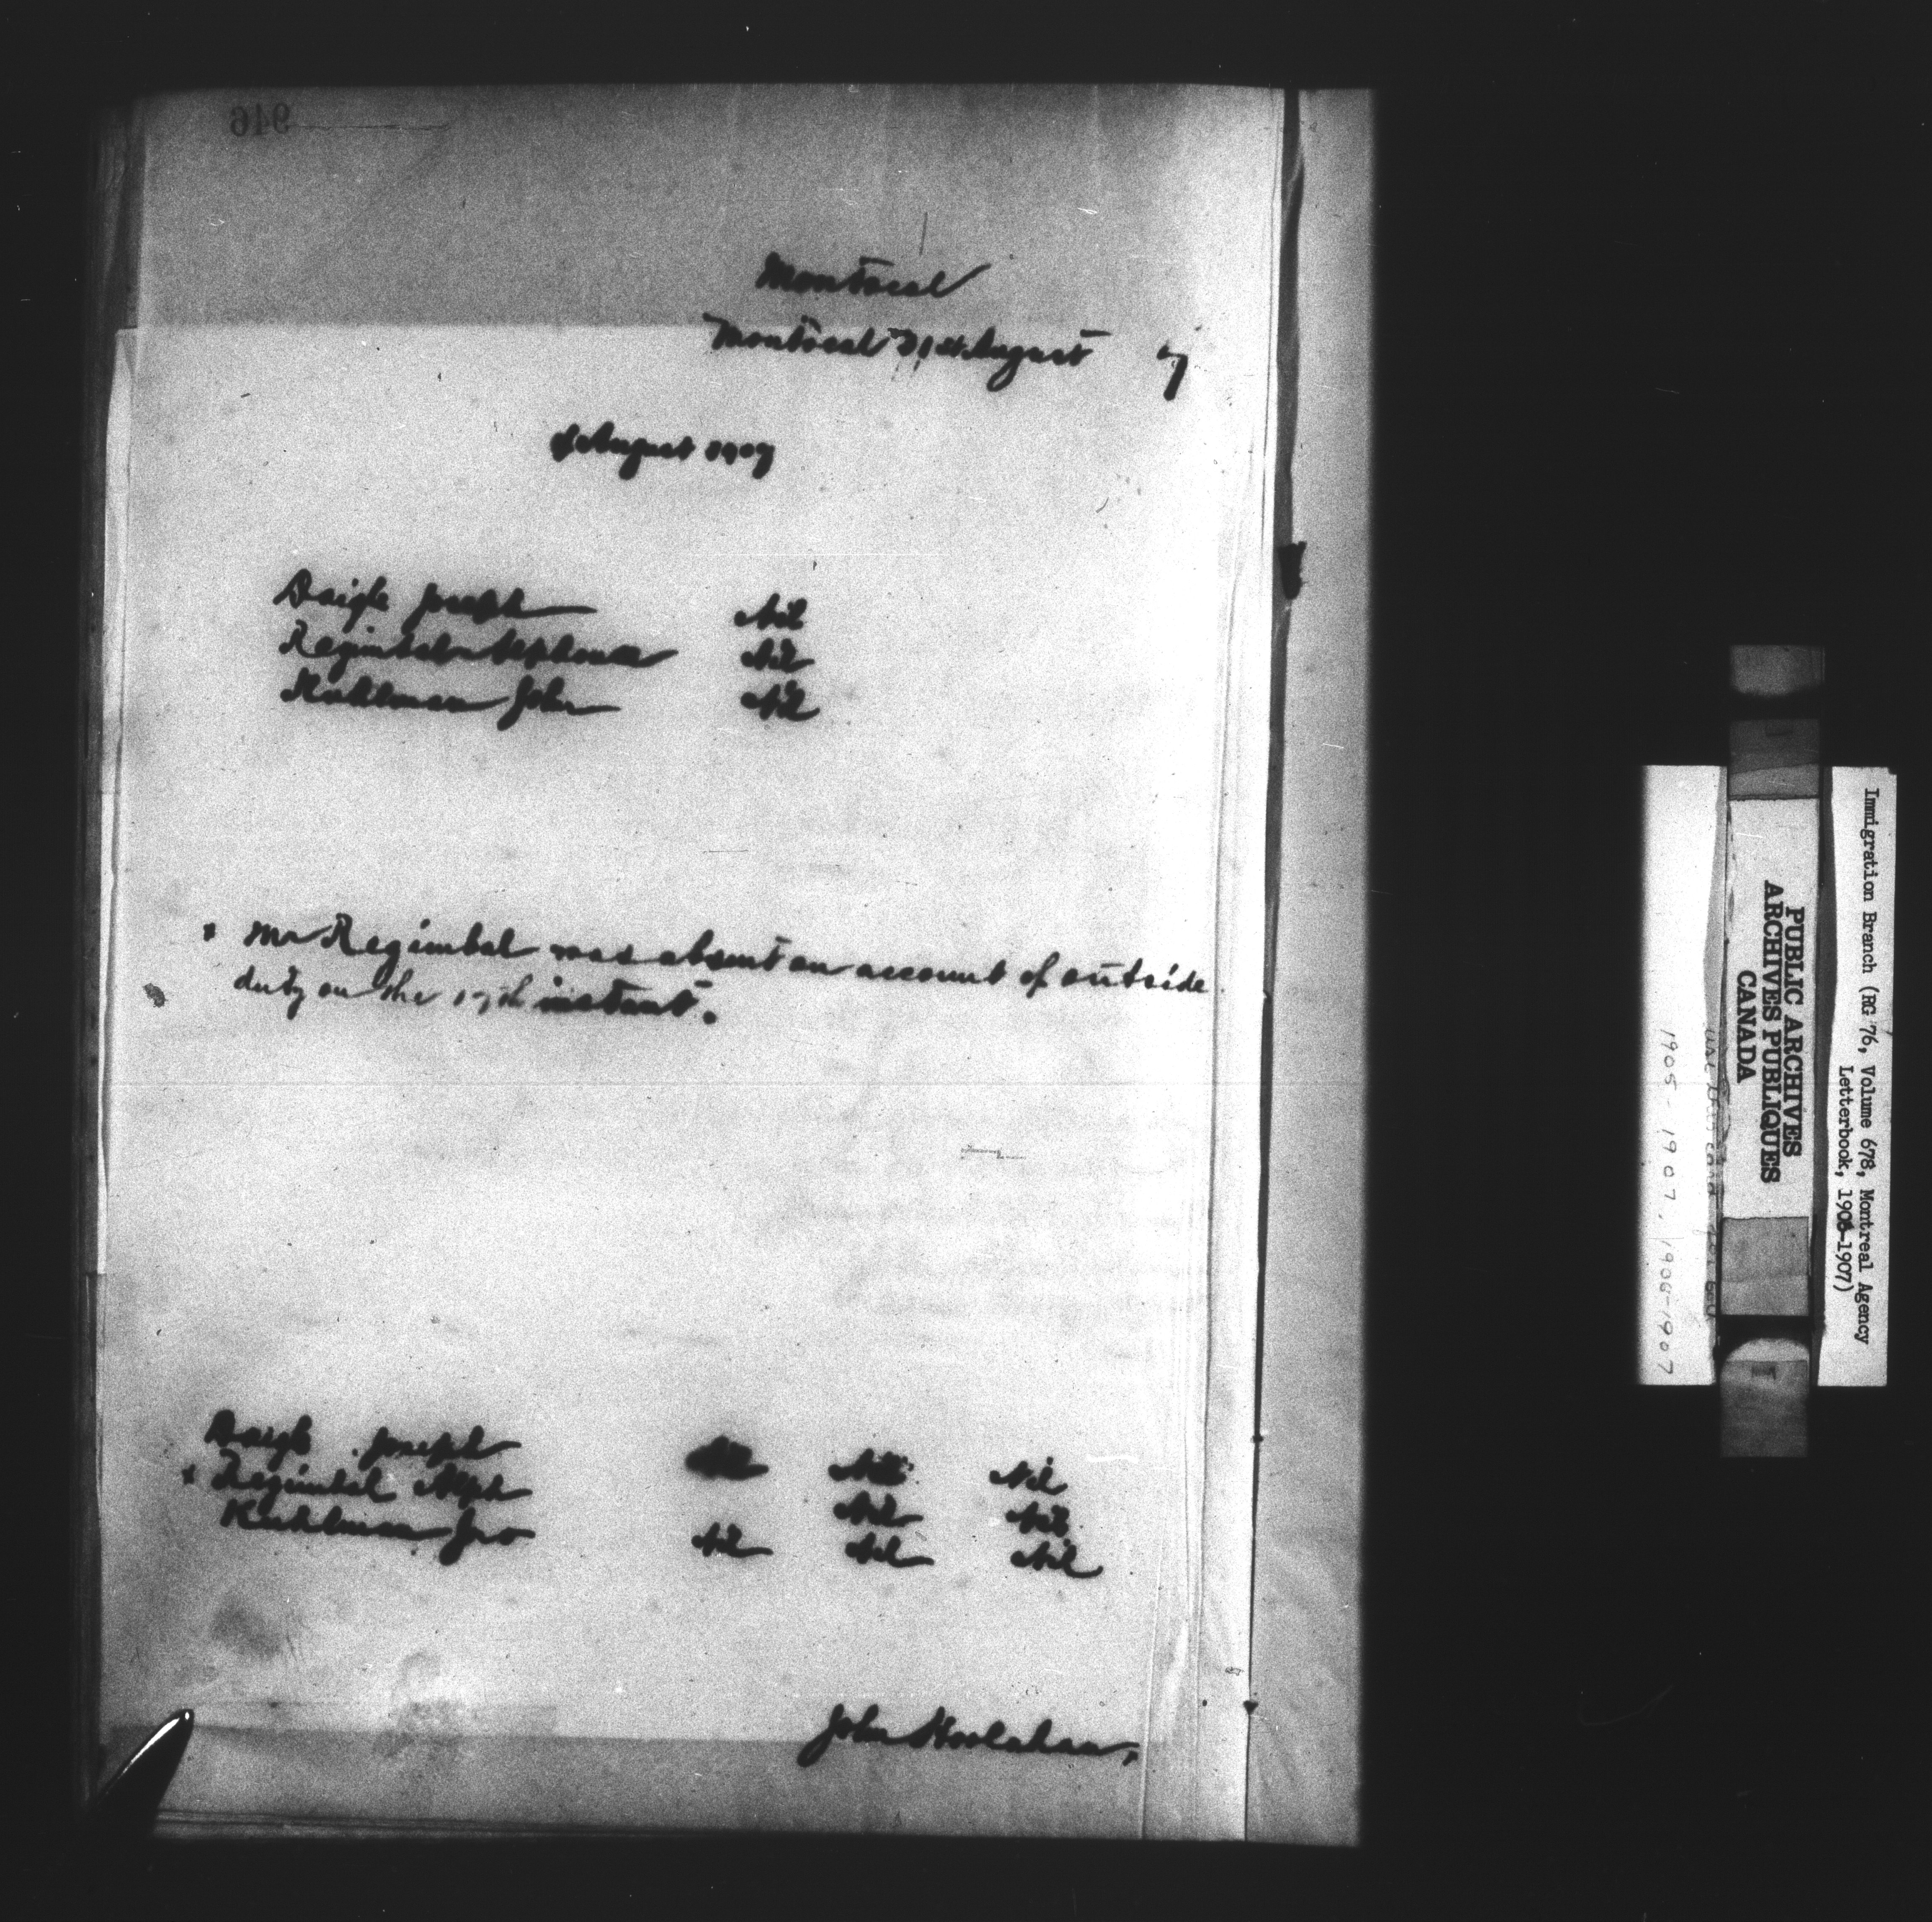 946
Montreal
Montreal 31st August 7
of August 1907
Daigle Joseph Nil
Regimbal Alphonse Nil
Kuhlman John Nil
x Mr Regimbal was absent on account of outside
duty on the 17th instant.
Daigle Joseph Nil Nil Nil
x Regimbal Alph Nil Nil
Kuhlman Jno Nil Nil Nil
John Hoolahan,
Immigration Branch (RG 76, Volume 678, Montreal Agency
Letterbook, 1906-1907)
PUBLIC ARCHIVES
ARCHIVES PUBLIQUES
CANADA
1905-1907, 1906-1907